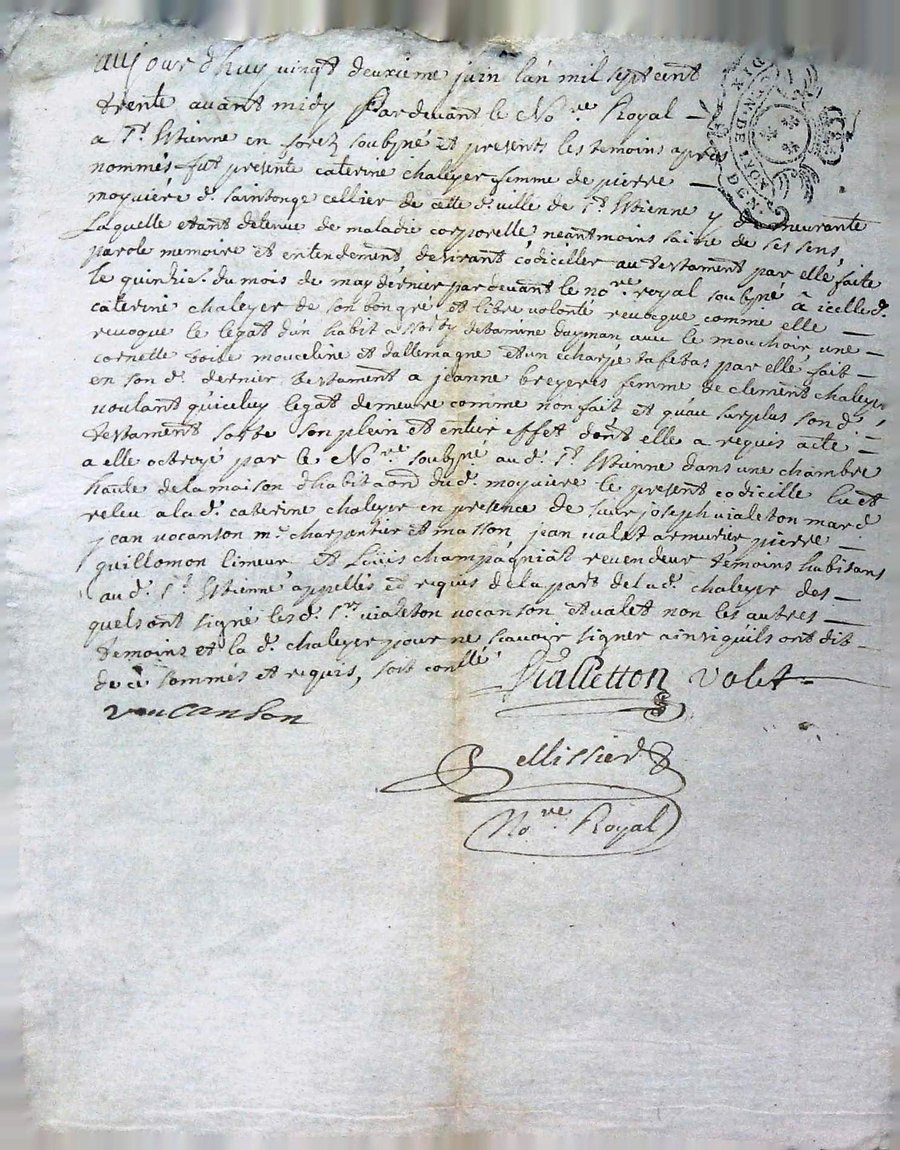 aujourdhuy vingt deuxieme juin lan mil sept cent
trente avant midy Pardevant le No.re Royal
a St. Etienne en forez soubzné et presents les temoins apres
nommés fut presente caterine chaleyer femme de pierre
moyuiére dt. saintonge cellier de cette d. ville de St. Etienne y demeurante
Laquelle etant detenue de maladie corporelle neantmoins saine de ses sens,
parole memoire et entendement desirant codiciller au testament par elle faite
le quinzie. du mois de may dernier pardevant le no.re royal soubzné à icelle d.
caterine chaleyer de son bon gré et libre volonté revoque comme elle
revoque le légat dun habit assorty detamine dayman avec le mouchoir une
cornette toile mouceline et dallemagne et un echarpe tafetas par elle fait
en son d. dernier testament a jeanne breyeres femme de clement chaleyer
voulant quiceluy legat demeure comme non fait et quau surplus son d.
testament sorte son plein et entier effet dont elle a requis acte
a elle octroyé par le No.re soubzné au d. St. Etienne dans une chambre
haute de la maison dhabitaon du d. moyuiere le present codicille lu et
releu a la d. caterine chaleyer en presence de sieur joseph vialeton marc.d
jean vocanson m.e charpentier et masson jean valet armurier pierre
guillomon limeur et Louis champagniat revendeur temoins habitans
au d. St. Etienne appellés et requis de la part de la d. chaleyer des
quels ont signé les d. srs. vialeton vocanson et valet non les autres
temoins et la d. chaleyer pour ne scavoir signer ainsi quils ont dit
de ce sommés et requis, soit conllé
Vialletton valet
vaucanson
Pellissier
No.re Royal
DIX
N. DE LYON
DEN.